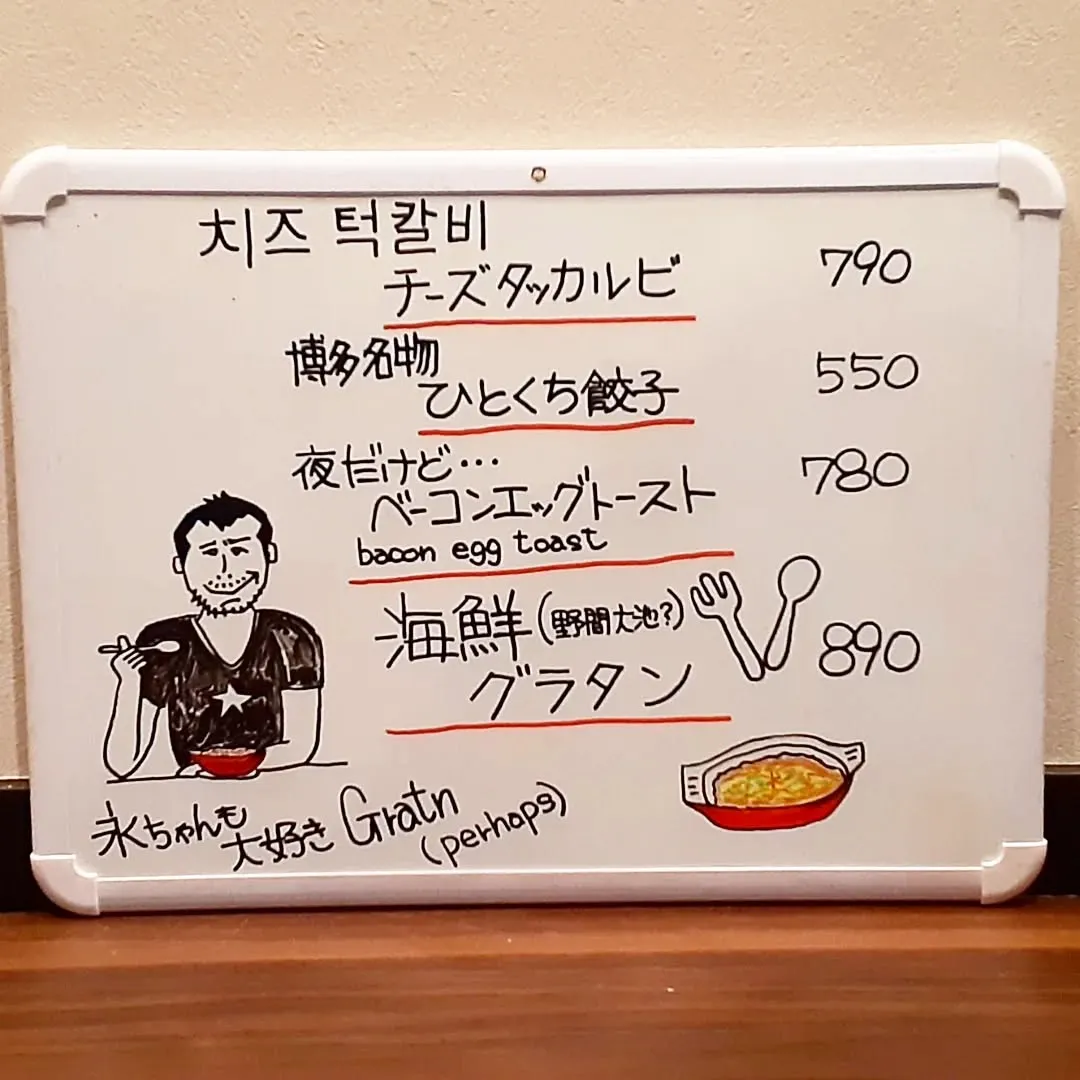 치즈 턱칼비
チーズタッカルビ 790
博多名物
ひとくち餃子 550
夜だけど…
ベーコンエッグトースト 780
bacon egg toast
海鮮(野間大池?)
グラタン 890
永ちゃんも
大好き Gratn
(perhaps)